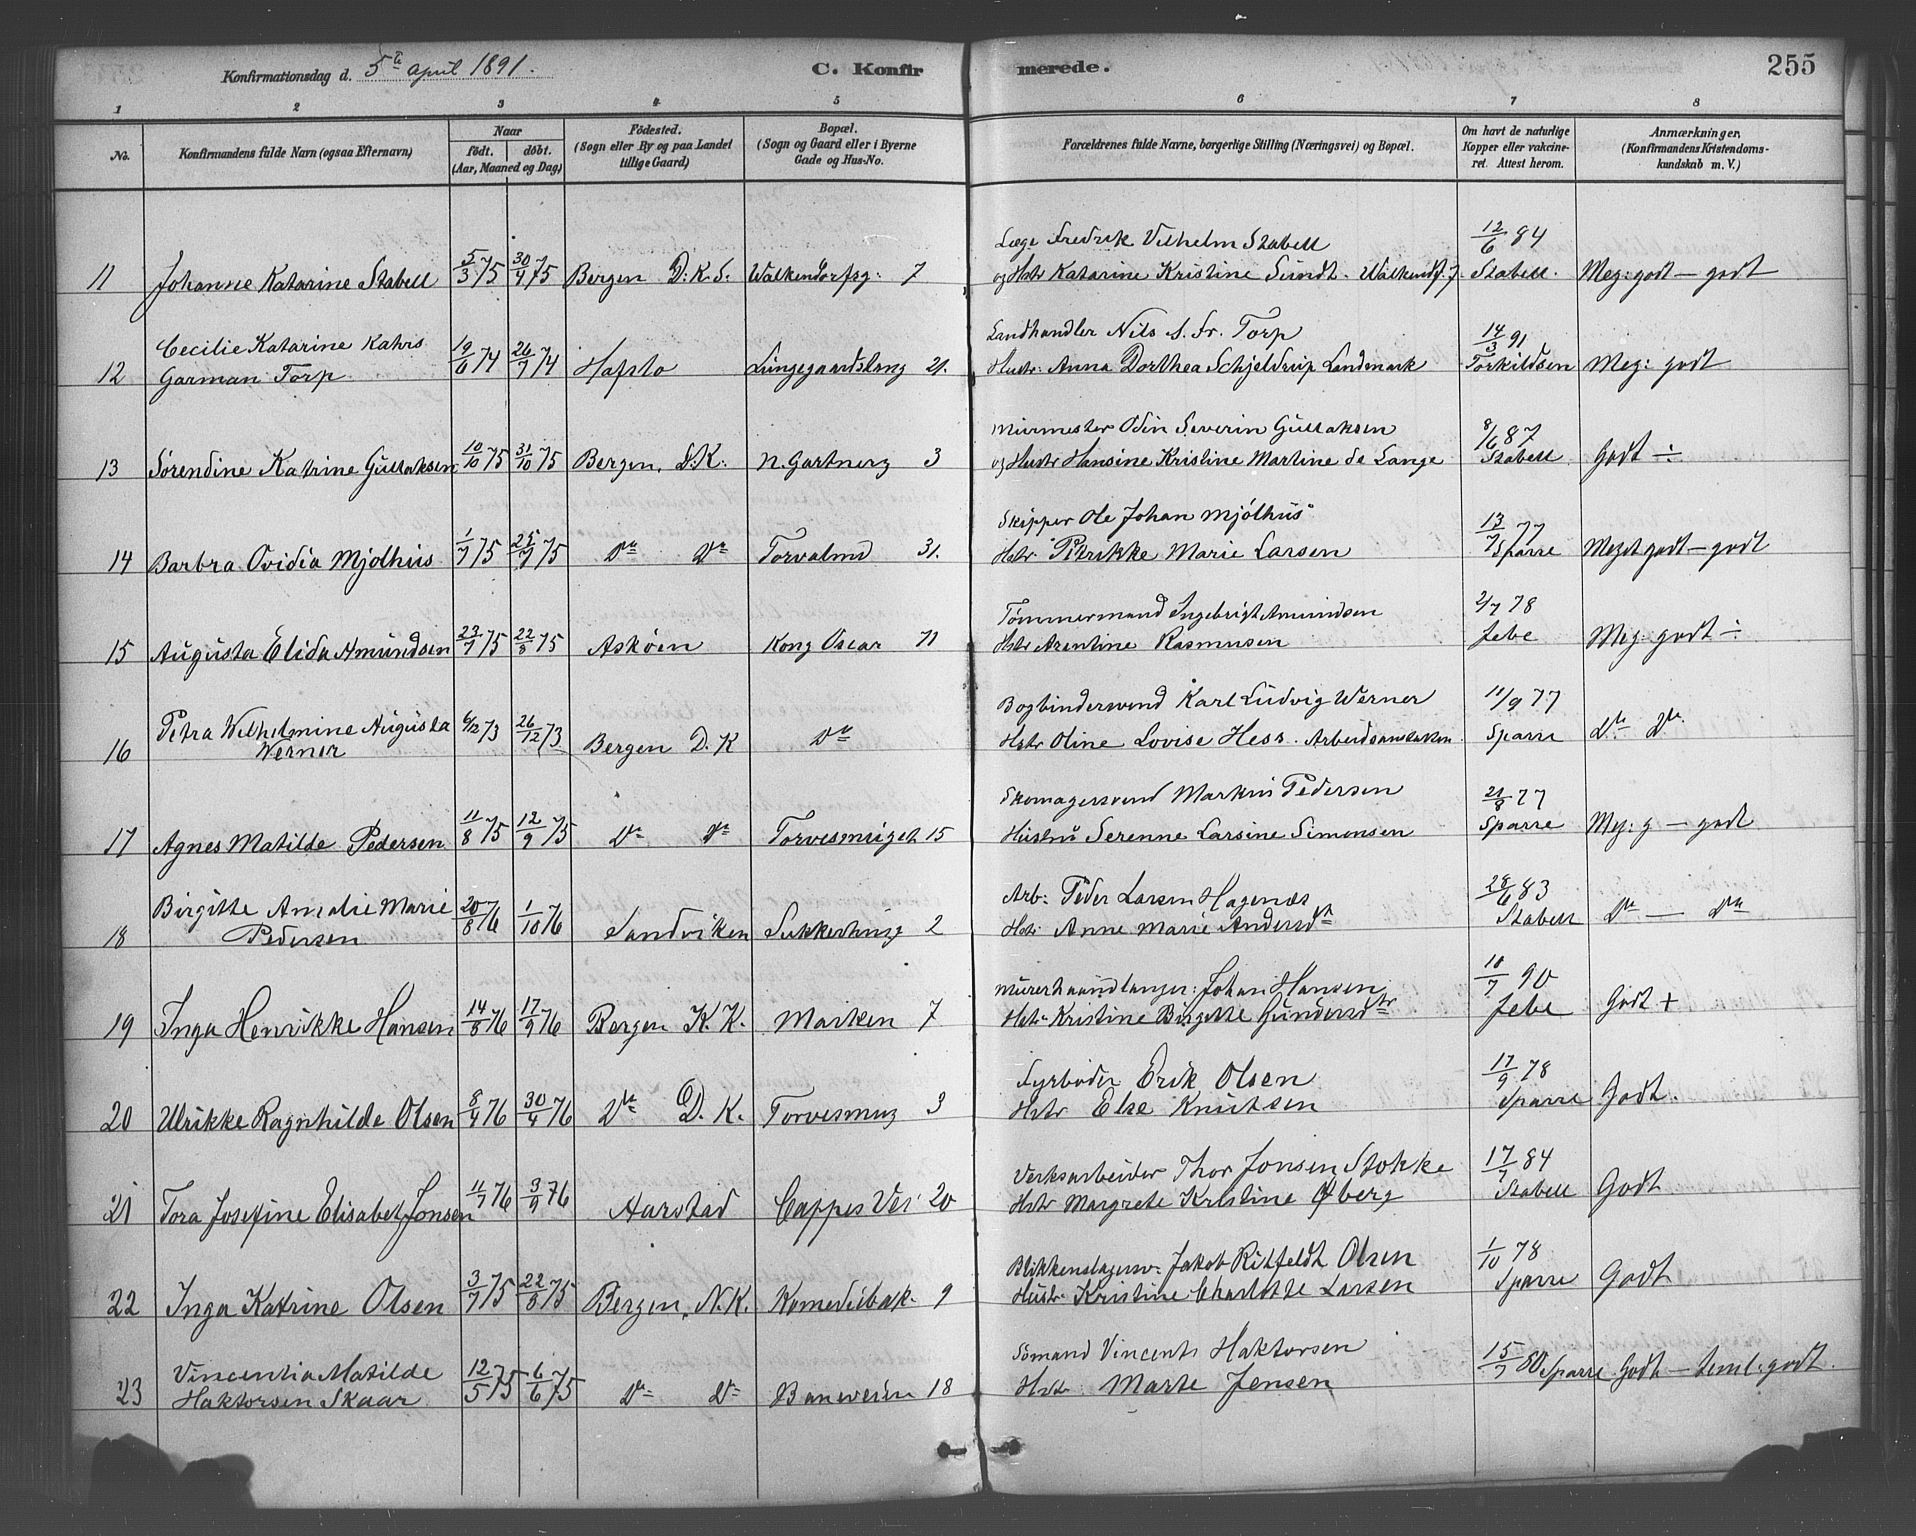 Konfirmationsdag d. 5te April 1891. C. Konfirmerede. 255
1 2 3 4 5 6 7 8
No. Konfirmandens fulde Navn (ogsaa Efternavn) Naar født. døbt. (Aar, Maaned og Dag) Födested. (Sogn eller By og paa Landet tillige Gaard) Bopæl. (Sogn og Gaard eller i Byerne Gade og Hus-No. Forældrenes fulde Navne, borgerlige Stilling (Næringsvei) og Bopæl. Om havt de naturlige Kopper eller vakcineret. Attest herom. Anmærkninger. (Konfirmandens Kristendomskundskab m. V.)
Læge Fredrik Vilhelm Stabell 12/6 84
11 Johanne Katarine Stabell 5/3 75 30/4 75 Bergen D.K.S. Walkendorfsg: 7 og Hstr Katarine Kristine Sundt. Walkendf. 7 Stabell. Meg: godt — godt
Cecilie Katarine Kahrs Landhandler Nils S. Fr. Torp 14/3 91
12 Garman Torp 19/6 74 26/7 74 Hafslo Lungegaardslang 21. Hustr: Anna Dorthea Schjeldrup Landmark Torkildsen Meg: godt
Murmester Odin Severin Gullaksen 8/6 87
13 Sørendine Katrine Gullaksen 10/10 75 31/10 75 Bergen. D.K. N. Gartnerg 3 og Hustr Hansine Kristine Martine de Lange Stabell Godt ÷
Skipper Ole Johan Mjølhus 13/7 77
14 Barbra Ovidia Mjølhus 1/7 75 25/7 75 Do Do Torvalmd 31. Hstr. Petrikke Marie Larsen Sparre Meget godt — godt
Tømmermand Ingebrigt Amundsen 2/7 78
15 Augusta Elida Amundsen 23/7 75 22/8 75 Askøen Kong Oscar 71 Hstr Arentine Rasmusen Jebe Meg: godt ÷
Petra Wilhelmine Augusta Bogbindersvend Karl Ludvig Werner 11/9 77
16 Werner 6/12 73 26/12 73 Bergen D.K Do Hstr Oline Lovise Hess. Arbeidsanstalten. Sparre Do Do
Skomagersvend Markus Pedersen 21/8 77
17 Agnes Matilde Pedersen 11/8 75 12/9 75 Do Do Torvesmuget 15 Hustru Serenne Larsine Simonsen Sparre Meg: g — godt
Birgitte Amalie Marie Arb: Peder Larsen Hagenæs 28/6 83
18 Pedersen 20/8 76 1/10 76 Sandviken Sukkerhusg 2 Hstr Anne Marie Andersdt Stabell Do — Do
Murerhaandlanger: Johan Hansen 10/7 90
19 Inga Henrikke Hansen 14/8 76 17/9 76 Bergen K.K. Marken 7 Hstr Kristine Birgitte Gundersdtr Jebe Godt +
Fyrbøder Erik Olsen 17/9 78
20 Ulrikke Ragnhilde Olsen 8/4 76 30/4 76 Do D.K. Torvesmug 3 Hstr Else Knutsen Sparre Godt.
Verksarbeider Thor Jonsen Stokke 17/7 84
21 Tora Josefine Elisabet Jonsen 11/7 76 3/9 76 Aarstad Cappes Vei 20 Hstr Margrete Kristine Øberg Stabell Godt
Blikkenslagersv. Jakob Ritfeldt Olsen 1/10 78
22 Inga Katrine Olsen 3/7 75 22/8 75 Bergen. N.K. Komediebak. 9 Hustr. Kristine Charlotte Larsen Sparre Godt
Vincentia Matilde Sømand Vincents Haktorsen
23 Haktorsen Skaar 12/5 75 6/6 75 Do Do Banveien 18 Hstr Marte Jensen 15/7 80 Sparre Godt — teml: godt.